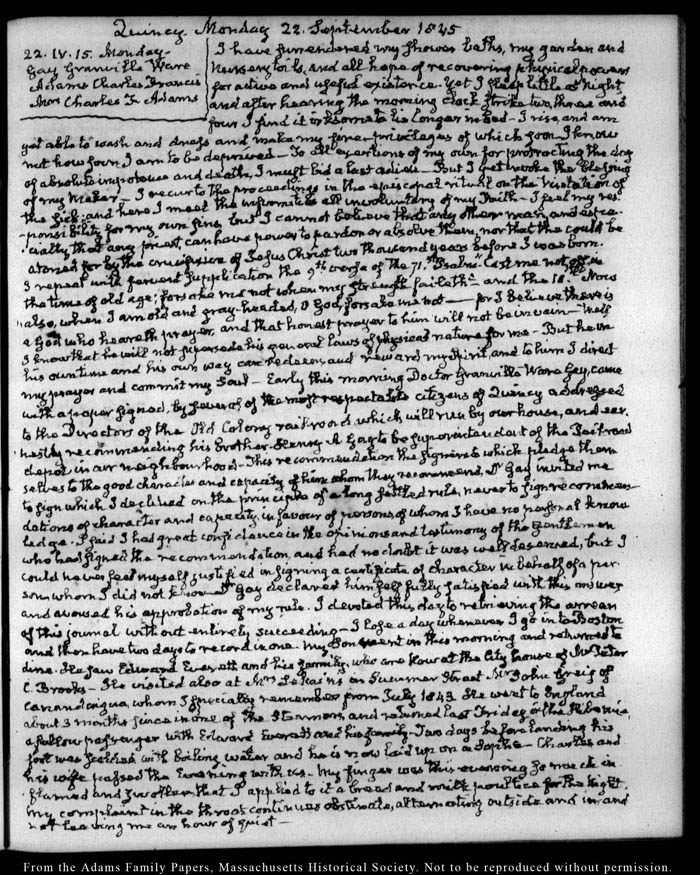 Quincy Monday 22. September 1845
22. IV. 15. Monday
Gay Granville Ware
Adams Charles Francis
Mrs Charles F. Adams
I have surrendered my shower baths, my garden and
Nursery toils, and all hope of recovering physical powers
for active and useful existence. Yet I sleep little at Night
and after hearing the morning clock strike two, three and
four I find it irksome to lie longer in bed - I rise, and am
yet able to wash and dress and make my fire privileges of which soon I know
not how soon I am to be deprived - To all exertions of my own for protracting the day
of absolute impotence and death, I must bid a last adieu - But I yet invoke the blessing
of my Maker - I recur to the proceedings in the episcopal ritual on the Visitation of
the Sick, and here I meet the infirmities all involuntary of my Faith - I feel my res-
ponsibility for my own sins, but I cannot believe that any other man, and espe-
cially that any priest, can have power to pardon or absolve them, nor that they could be
atoned for by the crucifixion of Jesus Christ two thousand years before I was born.
I repeat with fervent supplication the 9th verse of the 71st Psalm. Cast me not off in
the time of old age; forsake me not when my strength faileth - and the 18th Now
also, when I am old and gray-headed, O God, forsake me not - for I believe there is
a God who heareth prayer, and that honest prayer to him will not be in vain - Well
I know that he will not supersede his general laws of physical nature for me - But he in
his own time and his own way can redeem and reward my Spirit, and to him I direct
my prayer and commit my Soul - Early this morning Doctor Granville Ware Gay, came
with a paper signed, by several of the most respectable citizens of Quincy addressed
to the Directors of the Old Colony railroad which will run by our house, and ear-
nestly recommending his brother Henry Gay to be superintendent of the Railroad
depot in our neighbourhood - This recommendation the signers to which pledge them
selves to the good character and capacity of him whom they recommend, Dr Gay invited me
to sign which I declined on the principle of a long settled rule, never to sign recommen-
dations of character and capacity, in favour of persons of whom I have no personal know
ledge. I said I had great confidence in the opinions and testimony of the Gentlemen
who had signed the recommendation, and had no doubt it was well deserved, but I
could never feel myself justified in signing a certificate of character in behalf of a per
son whom I did not know - Dr Gay declared himself fully satisfied with this answer
and avowed his approbation of my rule. I devoted this day to retrieving the arrears
of this journal without entirely succeeding - I lose a day whenever I go in to Boston
and then have two days to record in one. My Son went in this morning and returned to
dine. He saw Edward Everett and his family, who are now at the City house of Mr Peter
C. Brooks - He visited also at Mrs in Summer Street Mr John Greig of
Canandaigua, whom I specially remember from July 1843. He went to England
about 3 months since in one of the Steamers, and returned last Friday in the Hibernia
a fellow passenger with Edward Everett and his family - Two days before landing his
foot was scalded with boiling water and he is now laid up on a Sopha - Charles and
his wife passed the Evening with us - My finger was this evening so much in-
flamed and swollen that I applied to it a bread and milk poultice for the Night.
My complaint in the throat continues obstinate, alternating outside and in and
not leaving me an hour of quiet -
From the Adams Family Papers, Massachusetts Historical Society. Not to be reproduced without permission.